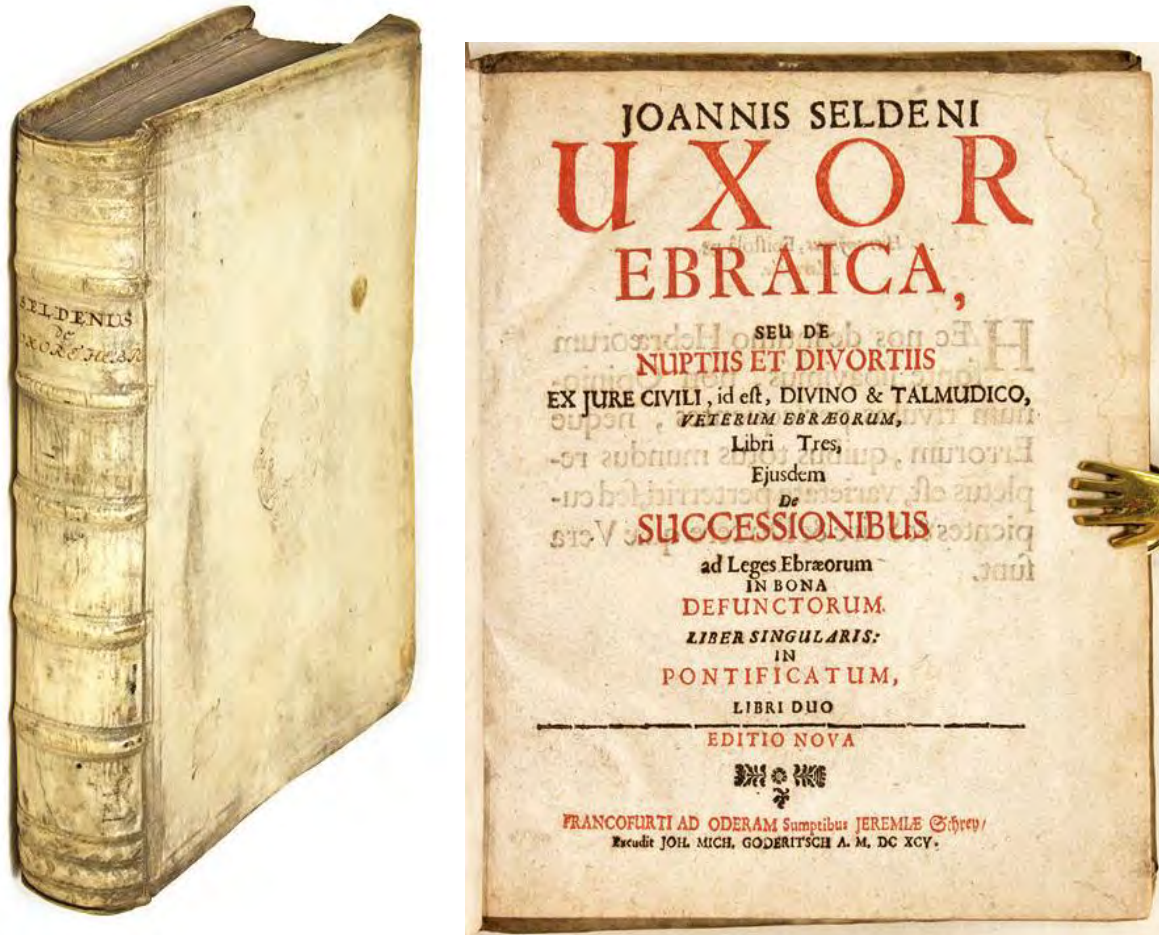 SELDENUS
de
UXORE HEBR
JOANNIS SELDENI
UXOR
EBRAICA,
SEU DE
NUPTIIS ET DIVORTIIS
EX JURE CIVILI, id eſt, DIVINO & TALMUDICO,
VETERUM EBRÆORUM,
Libri Tres,
Ejusdem
De
SUCCESSIONIBUS
ad Leges Ebræorum
IN BONA
DEFUNCTORUM.
LIBER SINGULARIS:
IN
PONTIFICATUM,
LIBRI DUO
EDITIO NOVA
FRANCOFURTI AD ODERAM Sumptibus JEREMIÆ Schrey/
Excudit JOH. MICH. GODERITSCH A. M, DC XCV.